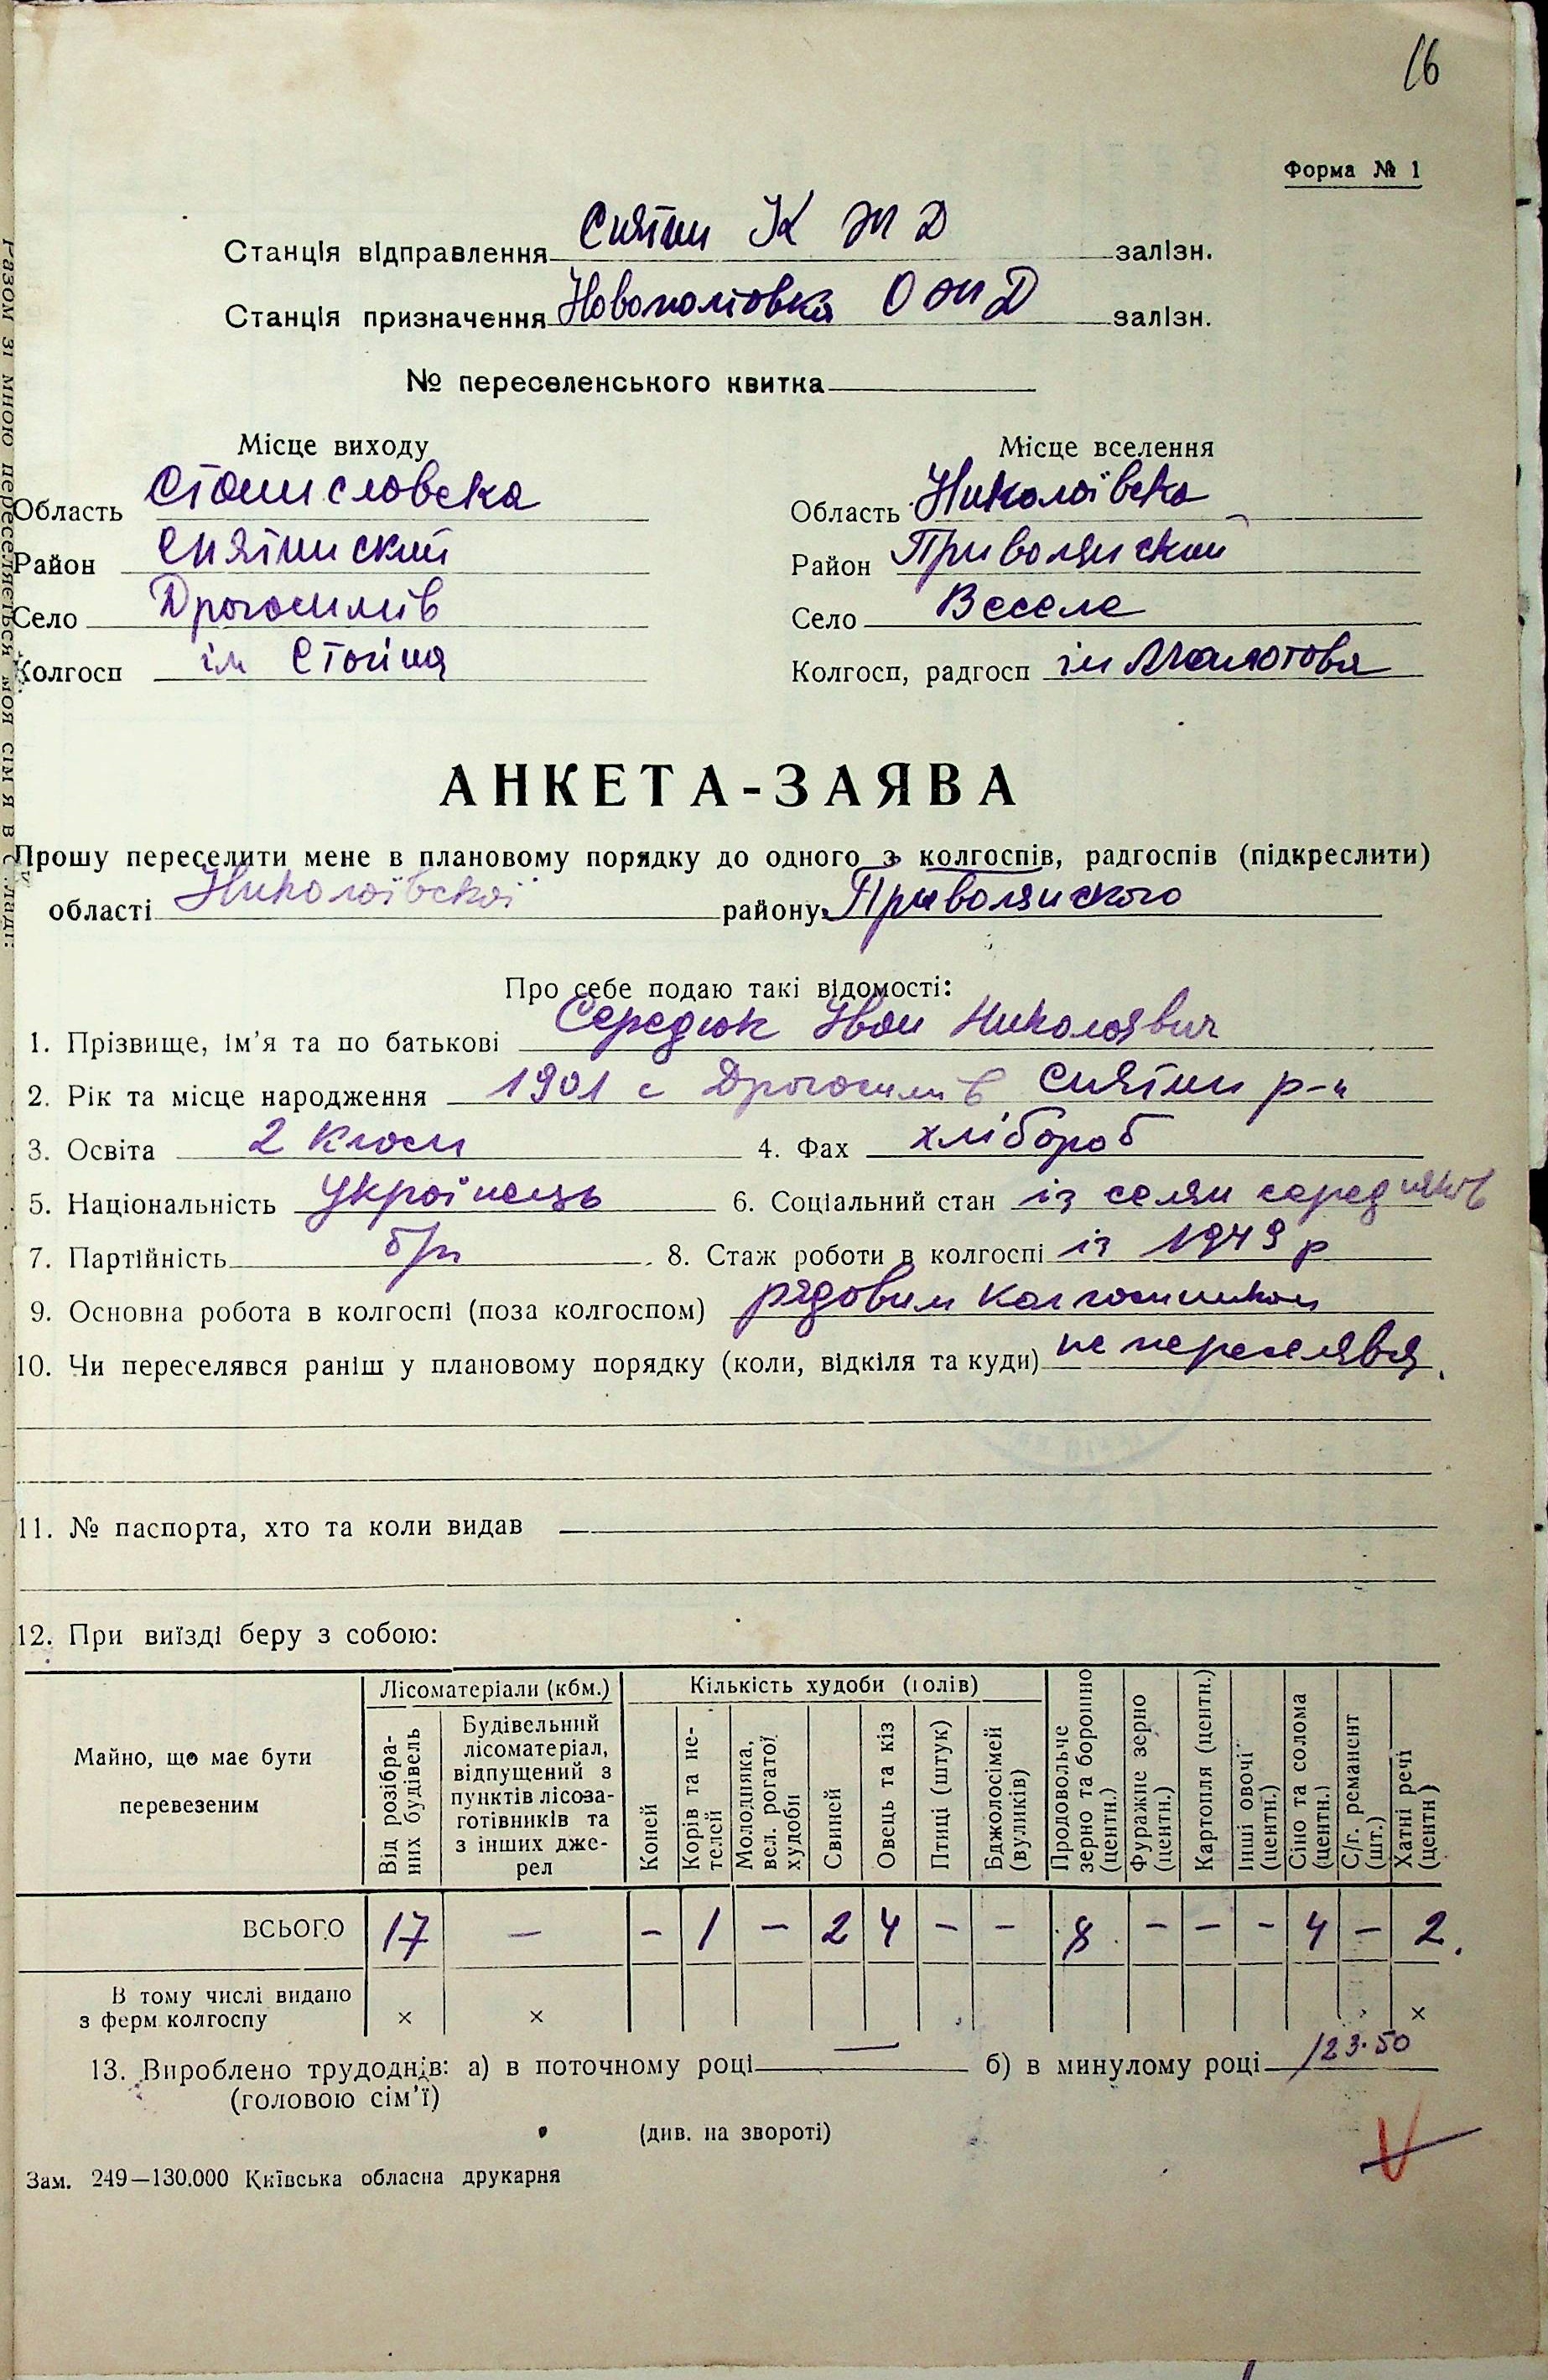 16
Форма № 1
Станція відправлення Снятин К Ж Д залізн.
Станція призначення Новополтовка О Ж Д залізн.
№ переселенського квитка
Місце виходу
Місце вселення
Область Станиславська
Область Николаївська
Район Снятинский
Район Привольнский
Село Драгосимів
Село Веселе
Колгосп ім Сталіна
Колгосп, радгосп ім Молотова
АНКЕТА-ЗАЯВА
Прошу переселити мене в плановому порядку до одного з колгоспів, радгоспів (підкреслити)
області Николаївскої району Привольнского
Про себе подаю такі відомості:
1. Прізвище, ім’я та по батькові Середюк Иван Николаявич
2. Рік та місце народження 1901 с Драгосимів Снятин р-н
3. Освіта 2 класи 4. Фах хлібороб
5. Національність Українець 6. Соціальний стан із селян середняків
7. Партійність б/п 8. Стаж роботи в колгоспі із 1949 р
9. Основна робота в колгоспі (поза колгоспом) рядовим колгоспником
10. Чи переселявся раніш у плановому порядку (коли, відкіля та куди) не переселявся.
11. № паспорта, хто та коли видав
12. При виїзді беру з собою:
Майно, що має бути перевезеним
Лісоматеріали (кбм.)
Кількість худоби (голів)
Від розібраних будівель
Будівельний лісоматеріал, відпущений з пунктів лісозаготівників та з інших джерел
Коней
Корів та нетелей
Молодняка, вел. рогатої худоби
Свиней
Овець та кіз
Птиці (штук)
Бджолосімей (вуликів)
Продовольче зерно та борошно (центн.)
Фуражне зерно (центн.)
Картопля (центн.)
Інші овочі (центн.)
Сіно та солома (центн.)
С/г. реманент (шт.)
Хатні речі (центн)
ВСЬОГО 17 — - 1 - 2 4 - - 8 - - - 4 - 2.
В тому числі видано
з ферм колгоспу × × ×
13. Вироблено трудоднів: а) в поточному році — б) в минулому році 123.50
(головою сім’ї)
(див. на звороті)
Зам. 249—130.000 Київська обласна друкарня
Разом зі мною переселяється моя сім’я в